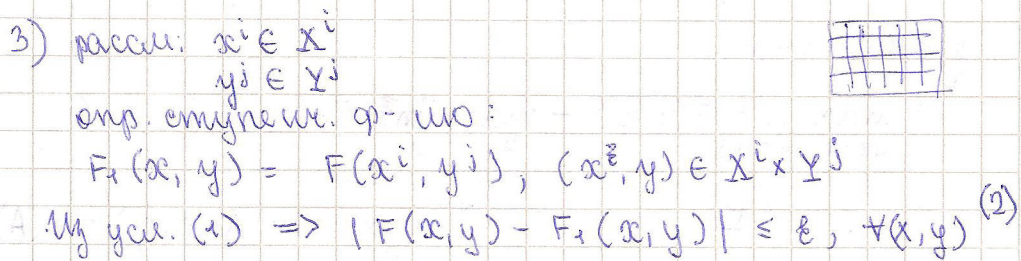 3) рассм: xⁱ ∈ Xⁱ
yʲ ∈ Yʲ
опр. ступенч. ф-шю:
F₁(x, y) = F(xⁱ, yʲ), (x, y) ∈ Xⁱ × Yʲ
Из усл. (1) => |F(x,y) - F₁(x,y)| ≤ ε, ∀(x,y) (2)